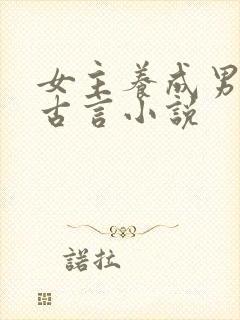 女主养成男
古言小说
諾拉